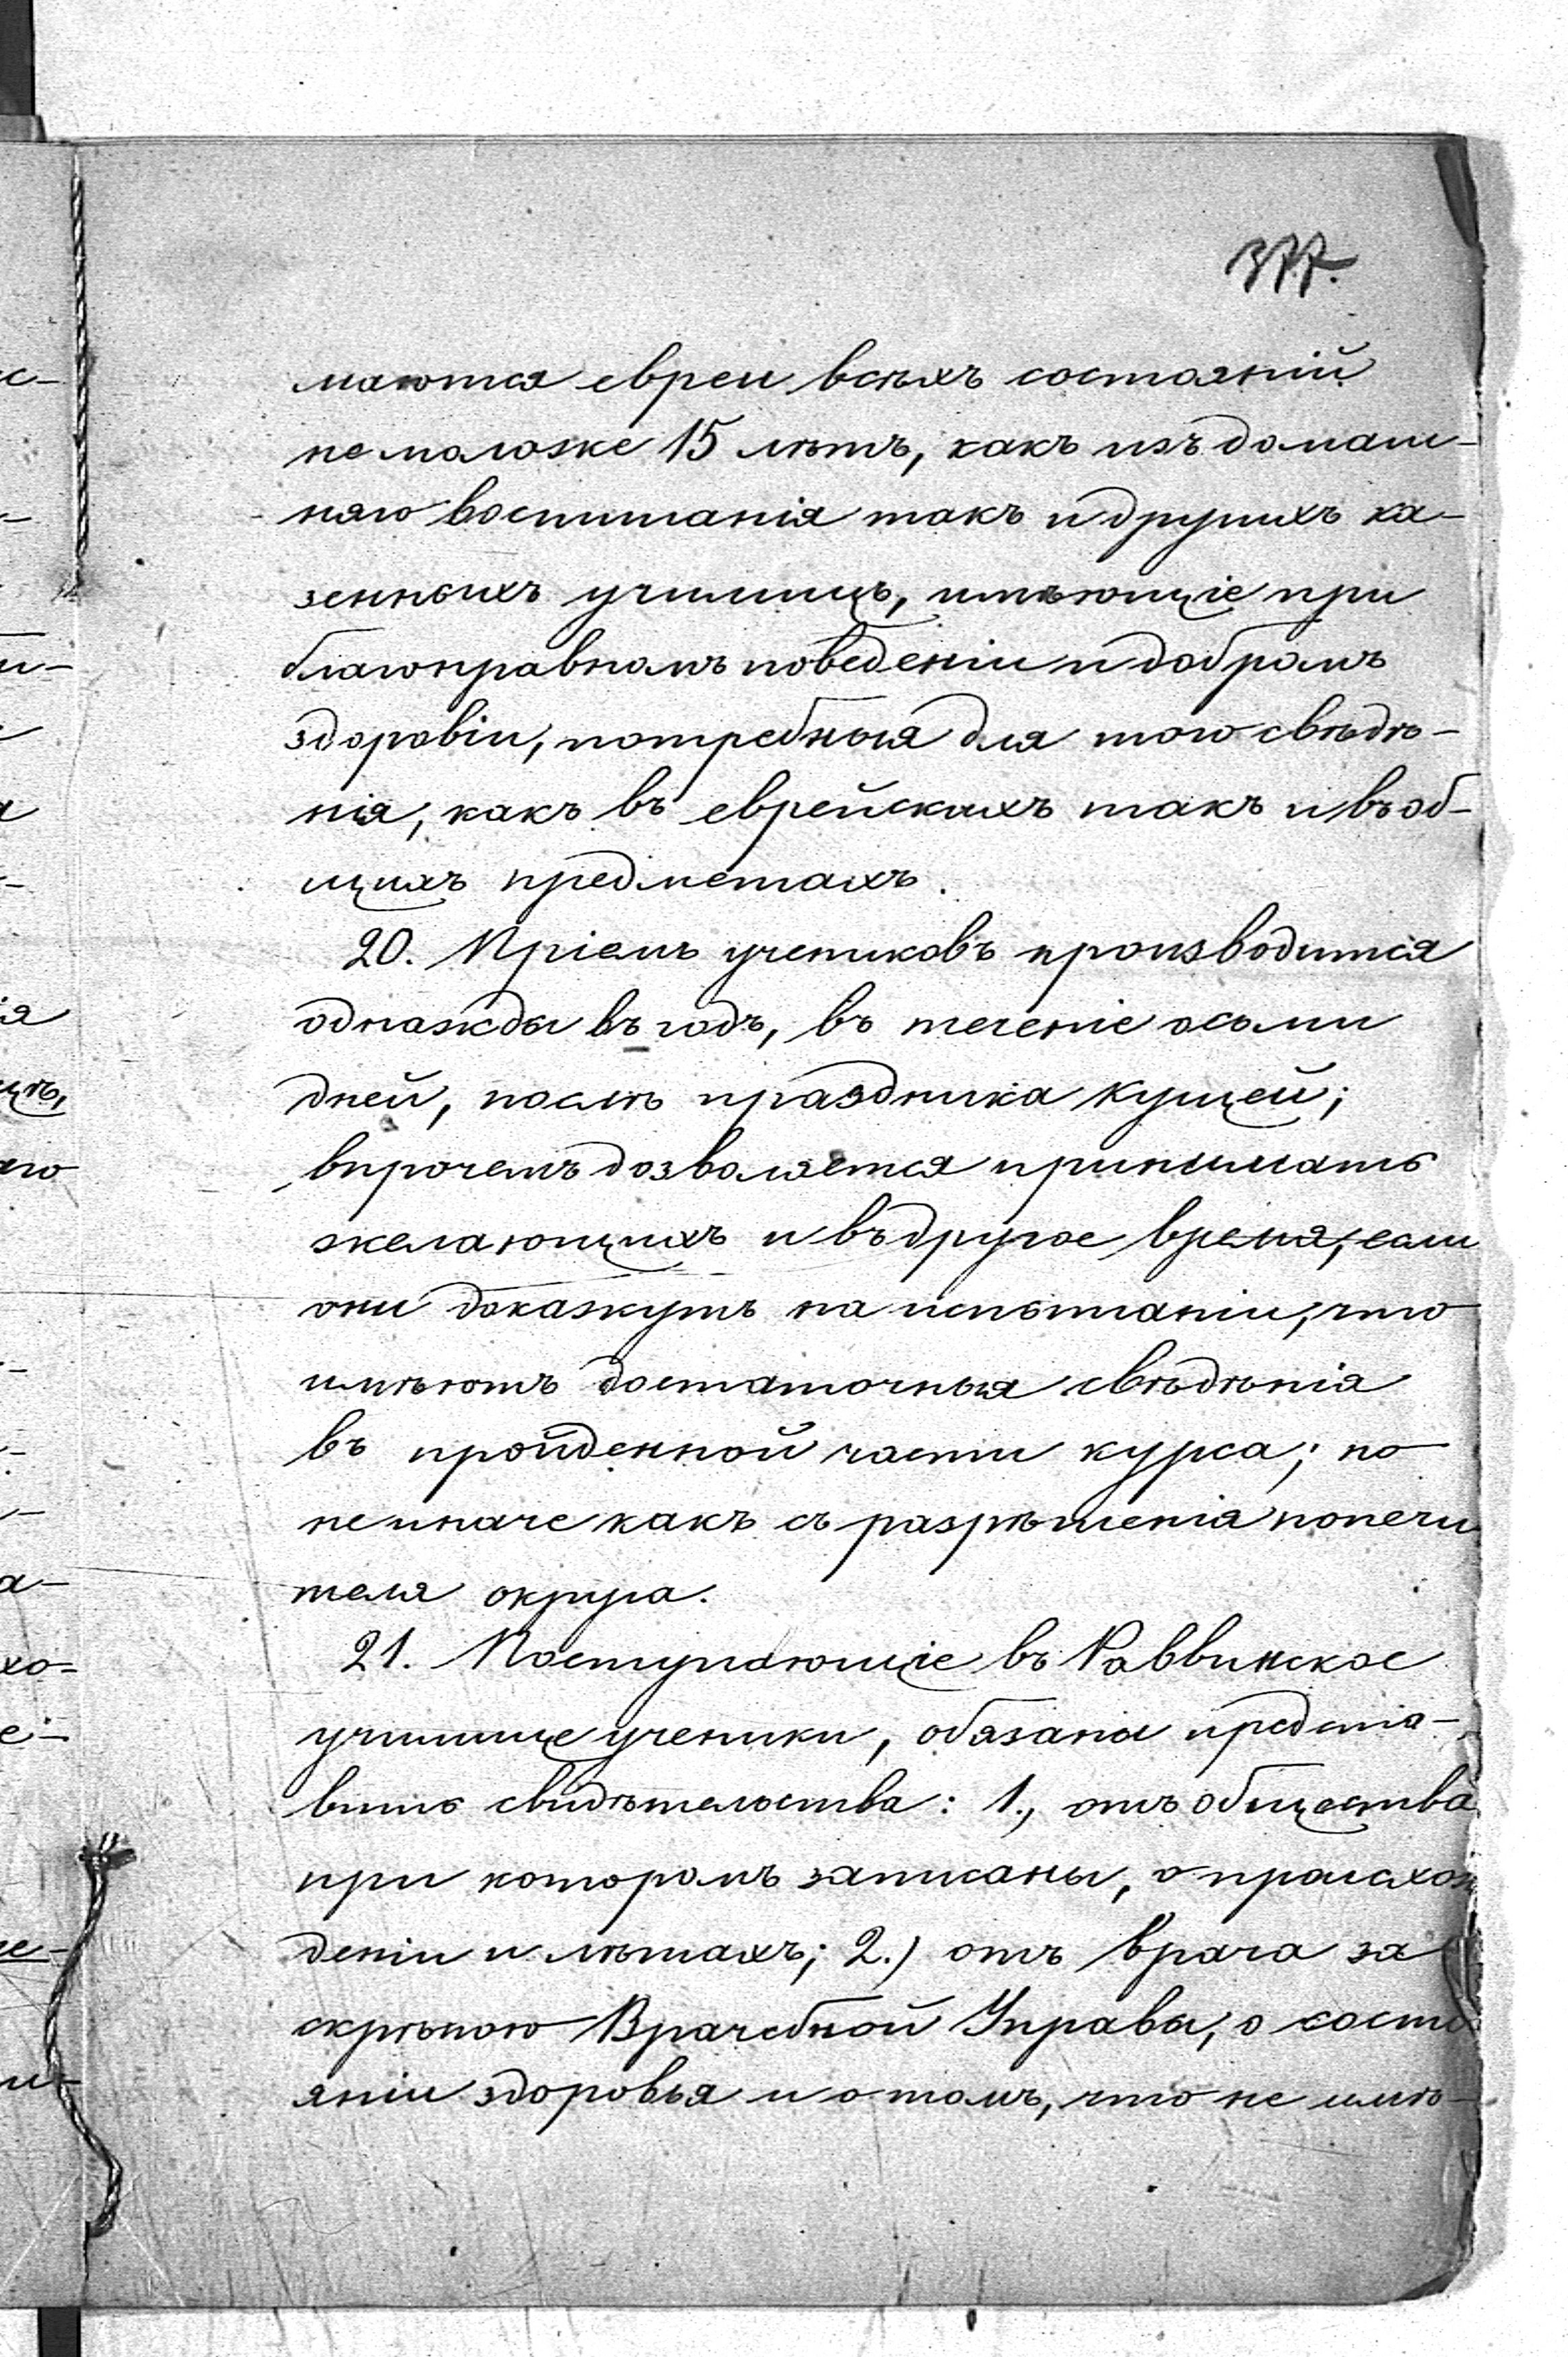 377.
маются евреи всѣхъ состояній
не моложе 15 лѣтъ, какъ изъ домаш-
няго воспитанія такъ и другихъ ка-
зенныхъ училищъ, имѣющіе при
благонравномъ поведеніи и добромъ
здоровіи, потребныя для того свѣдѣ-
нія, какъ въ еврейскихъ такъ и въ об-
щихъ предметахъ.
20. Пріемъ учениковъ производится
однажды въ годъ, въ теченіе осьми
дней, послѣ праздника Кущей;
впрочемъ дозволяется принимать
желающихъ и въ другое время, если
они докажутъ на испытаніи, что
имѣютъ достаточныя свѣдѣнія
въ пройденной части курса; но
не иначе какъ съ разрѣшенія попечи
теля округа.
21. Поступающіе въ Раввинское
училище ученики, обязаны предста-
вить свидѣтельства: 1., отъ общества
при которомъ записаны, о происхож
деніи и лѣтахъ; 2.) отъ врача за
скрѣпою Врачебной Управы, о состо
яніи здоровья и о томъ, что не имѣ-